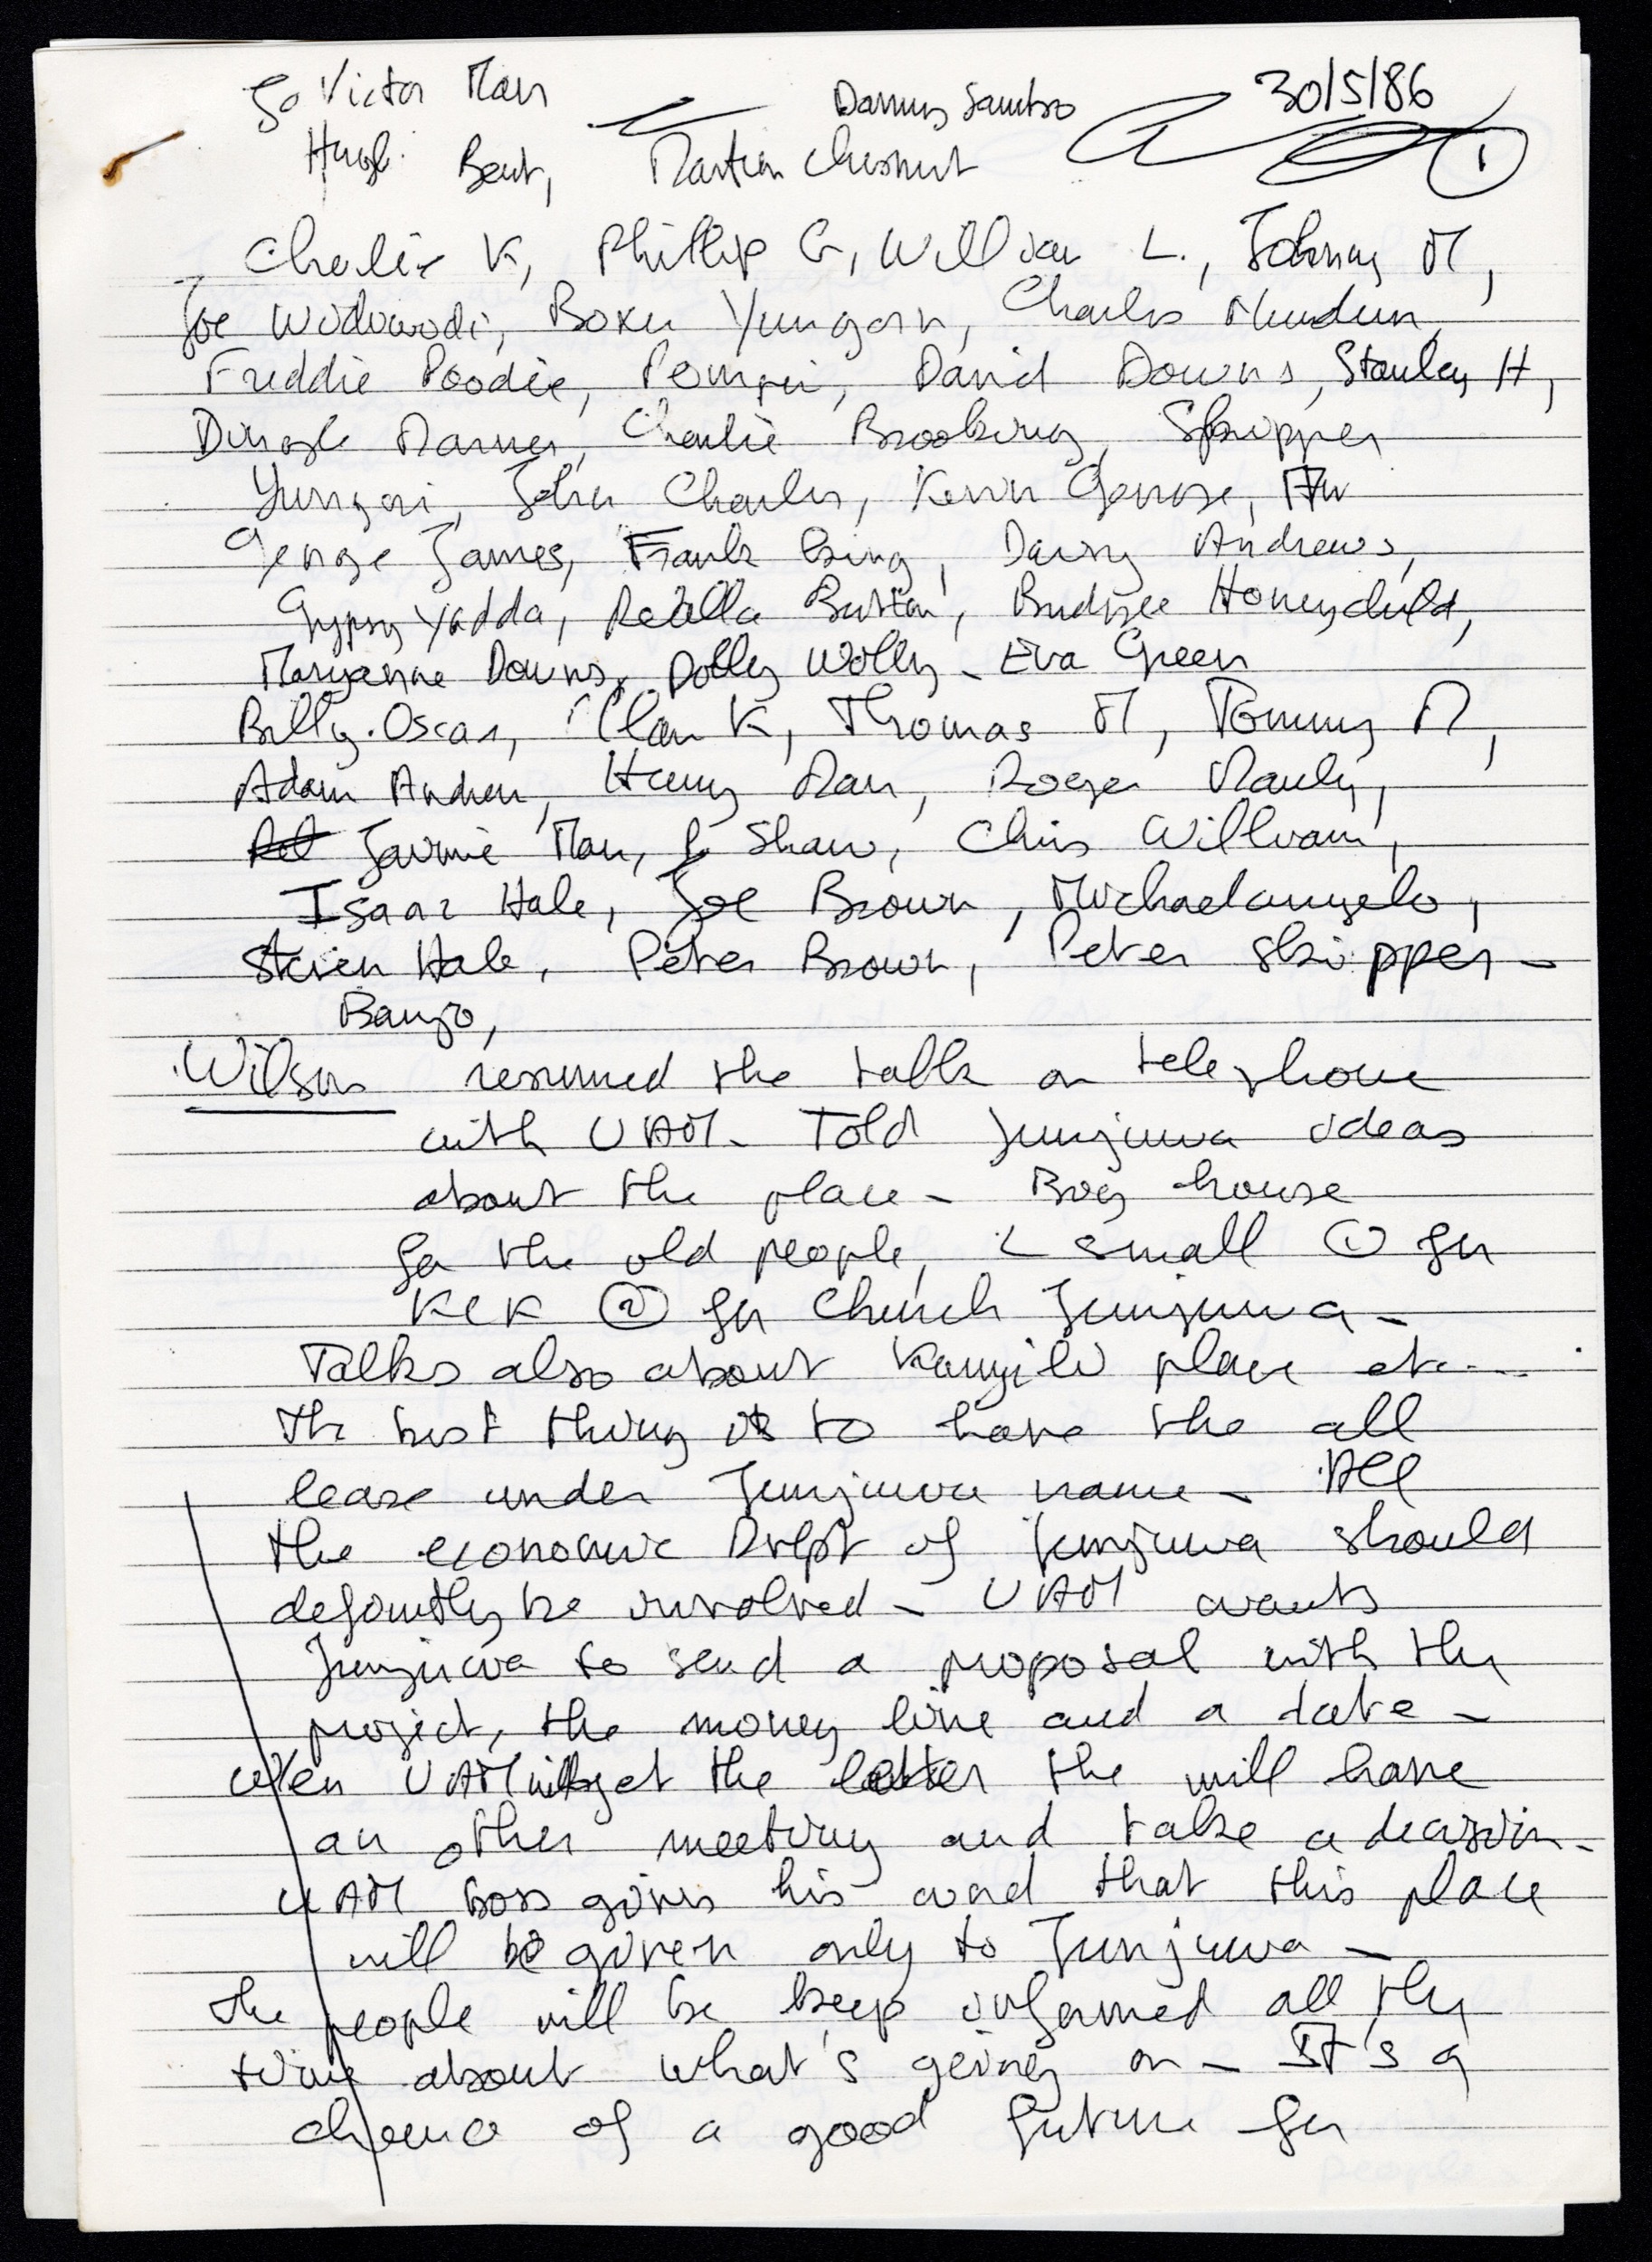 Victor Man Danny 30/5/86
Hugh Bent, Martin Chesnut 1
Charlie K, Phillip G, William L., Johnny M,
Joe Wodowodi, Boxer Yungarn, Charles
Freddie Poodie, Pompei, David Downs, Stanley H,
Dingle Charlie Brooking, Skipper
Yungari, John Charles, Kevin George,
George James, Frank Daisy Andrews,
Gypsy Yadda, Budgee Honeychild,
Maryanne Downs, Dolly Wolly - Eva Green
Billy Oscar, Alan K, Thomas M, Tommy M,
Adam Andrew, Harry Man, Roger
Jaimie Man, P Shaw, Chris William,
Isaac Hale, Joe Brown, Michaelangelo,
Steven Hale, Peter Brown, Peter Skipper -
Banjo,
Wilson resumed the talk on telephone
with UAM - Told Junjuwa ideas
about the place - Big house
for the old people, small ① for
KLK ② for Church Junjuwa -
Talks also about Kanyili place etc...
The best thing is to have the all
lease under Junjuwa name - All
the economic Dvlpt of Junjuwa should
defointly be involved - UAM wants
Junjuwa to send a proposal with the
project, the money line and a date -
When UAM will get the letter the will have
an other meeting and take a decision -
UAM boss gives his word that this place
will be given only to Junjuwa -
The people will be keep informed all the
time about what's going on - It's a
chance of a good future for